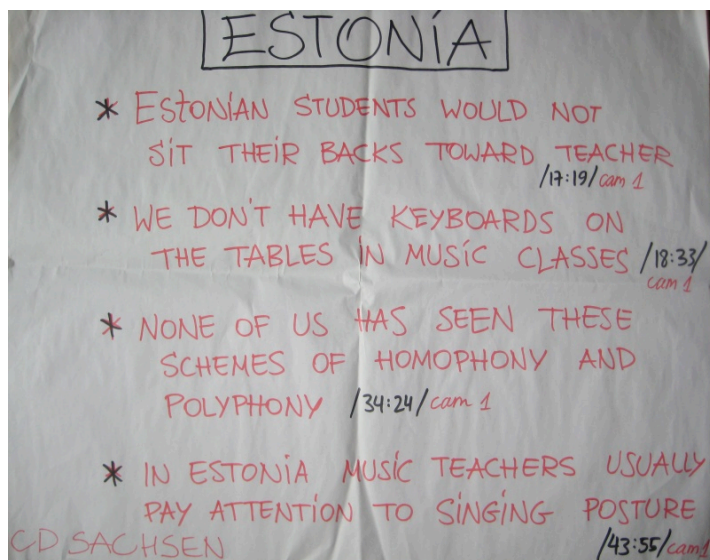 ESTONIA
* ESTONIAN STUDENTS WOULD NOT
SIT THEIR BACKS TOWARD TEACHER
/17:19/ cam 1
* WE DON'T HAVE KEYBOARDS ON
THE TABLES IN MUSIC CLASSES /18:33/
cam 1
* NONE OF US HAS SEEN THESE
SCHEMES OF HOMOPHONY AND
POLYPHONY /34:24/ cam 1
* IN ESTONIA MUSIC TEACHERS USUALLY
PAY ATTENTION TO SINGING POSTURE
CD SACHSEN /43:55/ cam 1